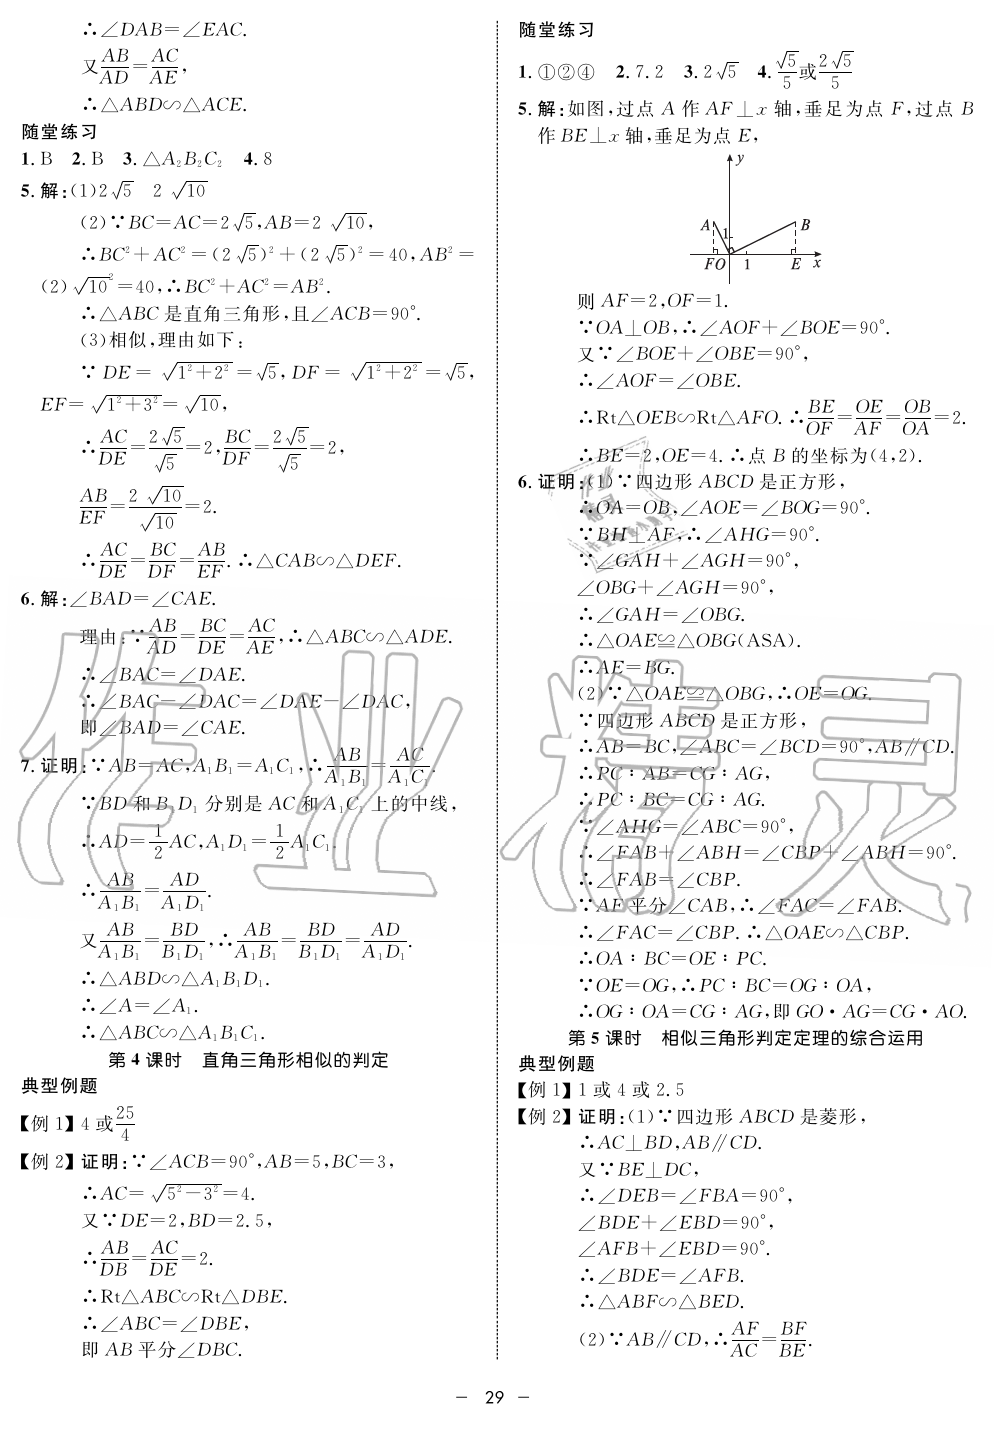 ∴∠DAB=∠EAC.
又AB/AD=AC/AE,
∴△ABD∽△ACE.
随堂练习
1.B 2.B 3.△A₂B₂C₂ 4.8
5.解:(1)2√5 2√10
(2)∵BC=AC=2√5,AB=2√10,
∴BC²+AC²=(2√5)²+(2√5)²=40,AB²=
(2)√10²=40,∴BC²+AC²=AB².
∴△ABC是直角三角形,且∠ACB=90°.
(3)相似,理由如下:
∵DE=√(1²+2²)=√5,DF=√(1²+2²)=√5,
EF=√(1²+3²)=√10,
∴AC/DE=2√5/√5=2,BC/DF=2√5/√5=2,
AB/EF=2√10/√10=2.
∴AC/DE=BC/DF=AB/EF.∴△CAB∽△DEF.
6.解:∠BAD=∠CAE.
理由:∵AB/AD=BC/DE=AC/AE,∴△ABC∽△ADE.
∴∠BAC=∠DAE.
∴∠BAC-∠DAC=∠DAE-∠DAC,
即∠BAD=∠CAE.
7.证明:∵AB=AC,A₁B₁=A₁C₁,∴AB/A₁B₁=AC/A₁C₁.
∵BD和B₁D₁分别是AC和A₁C₁上的中线,
∴AD=1/2AC,A₁D₁=1/2A₁C₁.
∴AB/A₁B₁=AD/A₁D₁.
又AB/A₁B₁=BD/B₁D₁,∴AB/A₁B₁=BD/B₁D₁=AD/A₁D₁.
∴△ABD∽△A₁B₁D₁.
∴∠A=∠A₁.
∴△ABC∽△A₁B₁C₁.
第4课时 直角三角形相似的判定
典型例题
【例1】4或25/4
【例2】证明:∵∠ACB=90°,AB=5,BC=3,
∴AC=√(5²-3²)=4.
又∵DE=2,BD=2.5,
∴AB/DB=AC/DE=2.
∴Rt△ABC∽Rt△DBE.
∴∠ABC=∠DBE,
即AB平分∠DBC.
随堂练习
1.①②④ 2.7.2 3.2√5 4.√5/5或2√5/5
5.解:如图,过点A作AF⊥x轴,垂足为点F,过点B
作BE⊥x轴,垂足为点E,
y
A 1 B
F O 1 E x
则AF=2,OF=1.
∵OA⊥OB,∴∠AOF+∠BOE=90°.
又∵∠BOE+∠OBE=90°,
∴∠AOF=∠OBE.
∴Rt△OEB∽Rt△AFO.∴BE/OF=OE/AF=OB/OA=2.
∴BE=2,OE=4.∴点B的坐标为(4,2).
6.证明:(1)∵四边形ABCD是正方形,
∴OA=OB,∠AOE=∠BOG=90°.
∵BH⊥AF,∴∠AHG=90°.
∵∠GAH+∠AGH=90°,
∠OBG+∠AGH=90°,
∴∠GAH=∠OBG.
∴△OAE≌△OBG(ASA).
∴AE=BG.
(2)∵△OAE≌△OBG,∴OE=OG.
∵四边形ABCD是正方形,
∴AB=BC,∠ABC=∠BCD=90°,AB∥CD.
∴PC∶AB=CG∶AG,
∴PC∶BC=CG∶AG.
∵∠AHG=∠ABC=90°,
∴∠FAB+∠ABH=∠CBP+∠ABH=90°.
∴∠FAB=∠CBP.
∵AF平分∠CAB,∴∠FAC=∠FAB.
∴∠FAC=∠CBP.∴△OAE∽△CBP.
∴OA∶BC=OE∶PC.
∵OE=OG,∴PC∶BC=OG∶OA,
∴OG∶OA=CG∶AG,即GO·AG=CG·AO.
第5课时 相似三角形判定定理的综合运用
典型例题
【例1】1或4或2.5
【例2】证明:(1)∵四边形ABCD是菱形,
∴AC⊥BD,AB∥CD.
又∵BE⊥DC,
∴∠DEB=∠FBA=90°,
∠BDE+∠EBD=90°,
∠AFB+∠EBD=90°.
∴∠BDE=∠AFB.
∴△ABF∽△BED.
(2)∵AB∥CD,∴AF/AC=BF/BE.
— 29 —
作业精灵